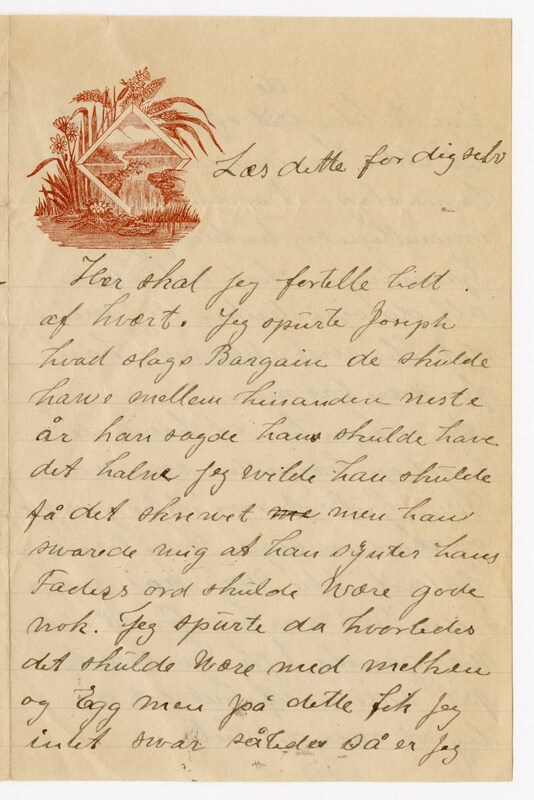 Læs dette for dig selv
Her skal jeg fortelle lidt
af hvært. Jeg spurte Joseph
hvad slags Bargain de skulde
have mellem hinanden neste
år han sagde han skulde have
det halve jeg wilde han skulde
få det skrevet men han
swarede mig at han synter hans
Faders ord skulde Være gode
nok. Jeg spurte da hvorledes
det skulde Være med melken
og Egg men på dette fik jeg
intet swar således så er jeg